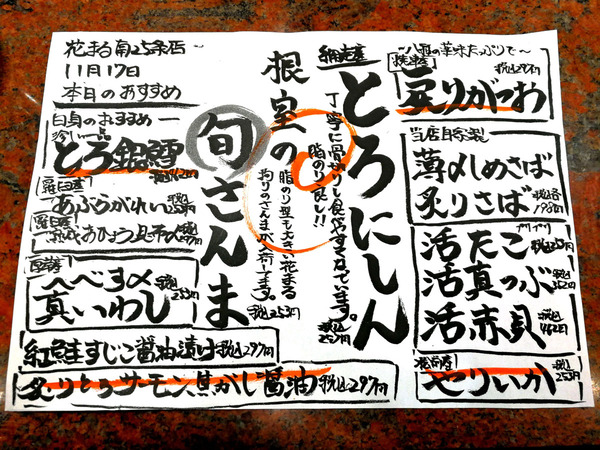 花まる南25条店
11月17日
本日のおすすめ
白身のおすすめ
珍しい一品
とろ銀鱈
羅臼産
あぶらがれい 税込253円
おひょう昆布〆
へべす〆
真いわし 税込253円
紅鮭すじこ醤油漬け 税込297円
炙りとろサーモン焦がし醤油 税込297円
根室の
旬さんま
脂のり、型も大きい花まる
拘りのさんまが入荷してます。
税込253円
網走産
とろにしん
丁寧に骨切りし食べやすくなっています。
脂のり良し!!
税込253円
〜八種の薬味たっぷりで〜
炙りがつお
税込297円
当店自家製
薄〆しめさば
炙りさば
税込各198円
プリプリ
活たこ
活真つぶ 税込352円
活赤貝 税込462円
やりいか 税込253円